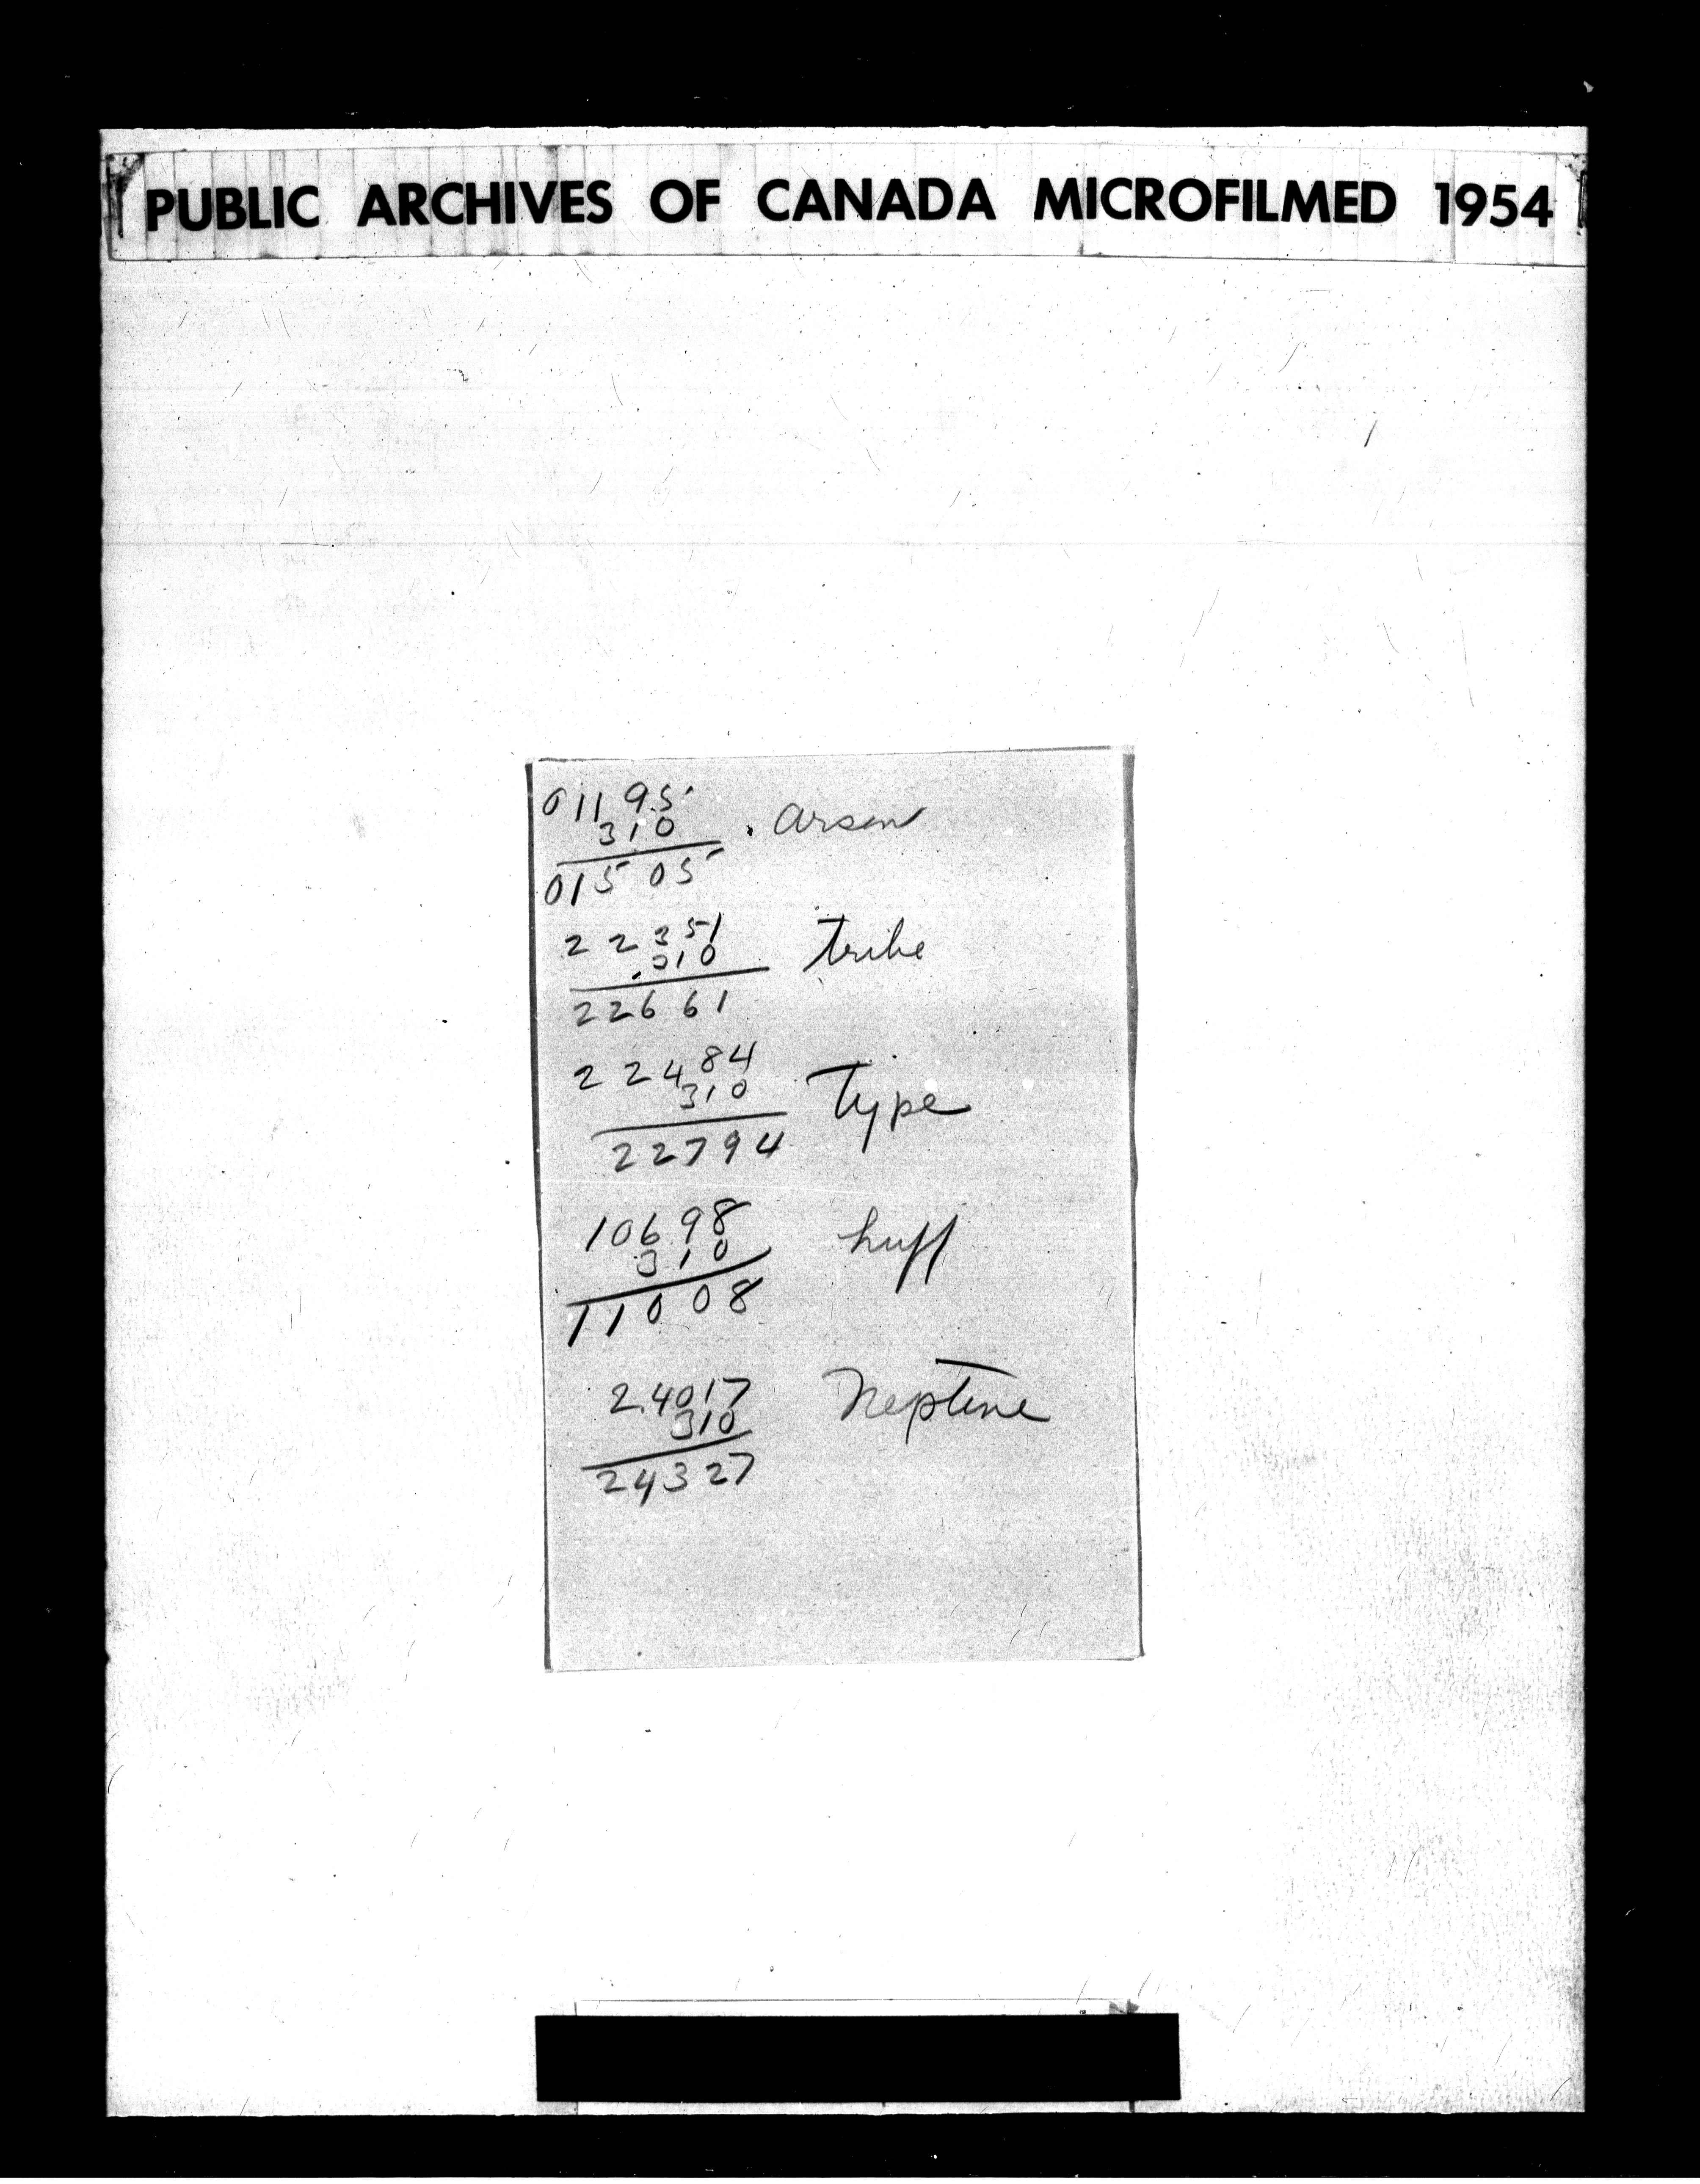 PUBLIC ARCHIVES OF CANADA MICROFILMED 1954
01195
310 . arson
01505
22351
310 tribe
22661
22484
310 Type
22794
10698
310 huff
11008
24017
310 Neptune
24327